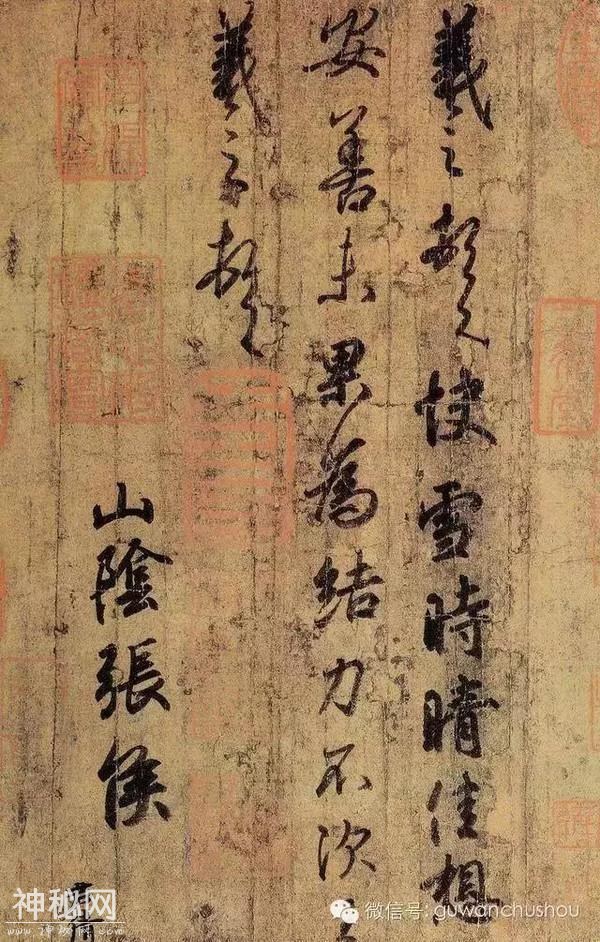 羲之頓首快雪時晴佳想
安善未果為結力不次王
羲之頓首
山陰張侯
神秘网
微信号: guwanchushou